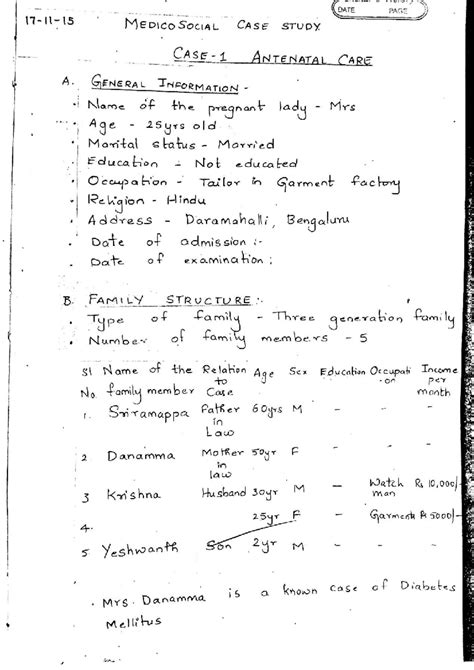 DATE PAGE
17-11-15 MEDICO SOCIAL CASE STUDY
CASE-1 ANTENATAL CARE
A. GENERAL INFORMATION -
· Name of the pregnant lady - Mrs
· Age - 25yrs old
· Marital status - Married
· Education - Not educated
· Occupation - Tailor in Garment factory
· Religion - Hindu
· Address - Daramahalli, Bengaluru
· Date of admission :-
· Date of examination :
B. FAMILY STRUCTURE :-
· Type of family - Three generation family
· Number of family members - 5
Sl Name of the Relation Age Sex Education Occupati Income
No. family member to Case -on per month
1. Sriramappa Father in Law 60yrs M - - -
2 Danamma Mother in law 50yr F - - -
3 Krishna Husband 30yr M - Watch man Rs 10,000/-
4. 25yr F - Garments Rs 5000/-
5 Yeshwanth Son 2yr M - - -
· Mrs. Danamma is a known case of Diabetes
Mellitus